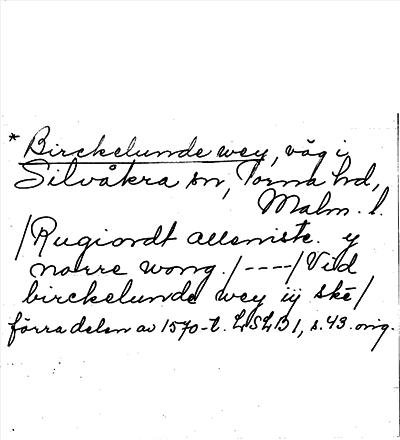 * Birckelunde wey, väg i
Silvåkra sn, Torna hd,
Malm. l.
/Rugiordt allemiste. y
norre wong./----/Vid
birckelunde wey iij ske/
förra delen av 1570-t. LSLB 1, s. 43. orig.